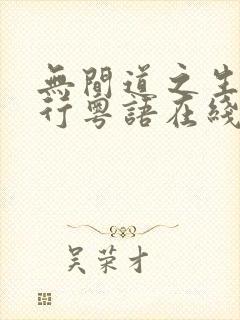 無間道之生
行粵語在綫
吴荣才